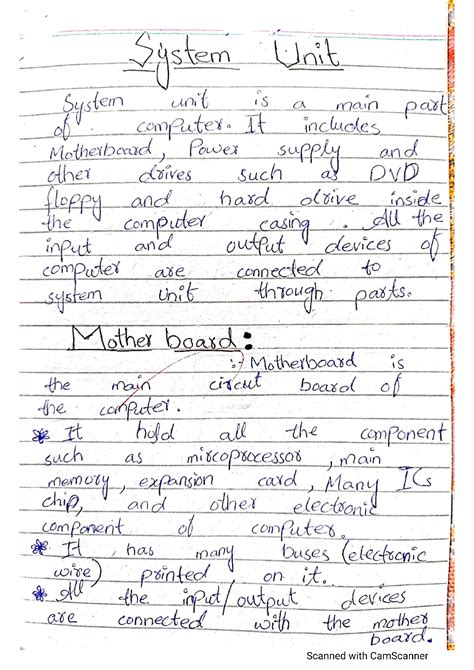 System Unit
System unit is a main part
of computer. It includes
Motherboard, Power supply and
other drives such as DVD
floppy and hard drive inside
the computer casing. All the
input and output devices of
computer are connected to
system unit through parts.
Mother board:
:- Motherboard is
the main circut board of
the computer.
* It hold all the component
such as mircoprocessor, main
memory, expansion card, Many ICs
chip, and other electronic
component of computer.
* It has many buses (electronic
wire) printed on it.
* All the input/output devices
are connected with the mother
board.
Scanned with CamScanner